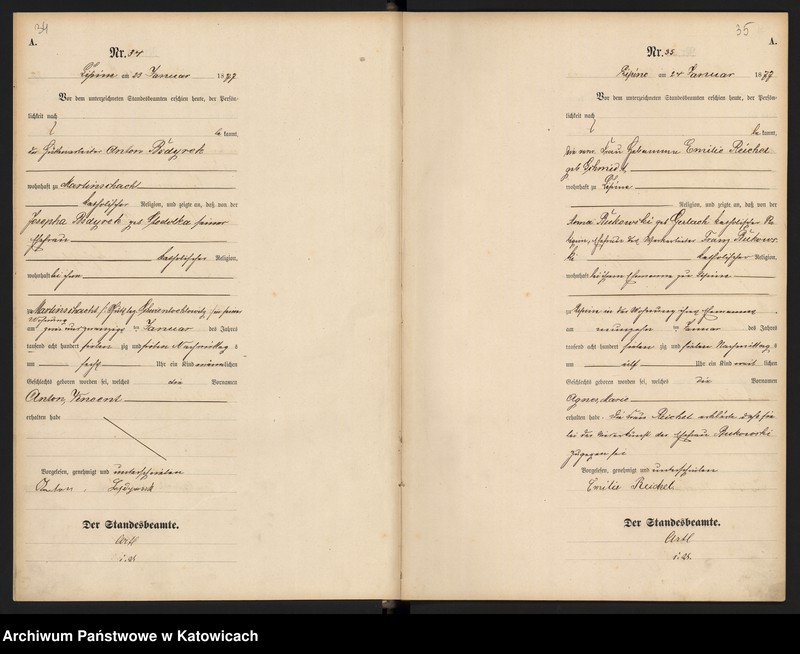 34
A.
Nr. 34
Lipine am 23 Januar 1877
Vor dem unterzeichneten Standesbeamten erschien heute, der Persön-
lichkeit nach
be kannt,
der Hüttenarbeiter Anton
wohnhaft zu Martinschacht
katholischer Religion, und zeigte an, daß von der
Josepha geb. seiner
Ehefrau
katholischer Religion,
wohnhaft bei ihm
zu Martinschacht
Wohnung
am zwei und zwanzigsten Januar des Jahres
tausend acht hundert sieben zig und sieben Nachmittags
um sechs Uhr ein Kind männlichen
Geschlechts geboren worden sei, welches den Vornamen
Anton, Vincent
erhalten habe
Vorgelesen, genehmigt und unterschrieben
Anton
Der Standesbeamte.
Artl
i. V.
35
A.
Nr. 35
Lipine am 24 Januar 1877
Vor dem unterzeichneten Standesbeamten erschien heute, der Persön-
lichkeit nach
be kannt,
die verw. Frau Hebamme Emilie Reichel
geb. Schmidt
wohnhaft zu Lipine
Religion, und zeigte an, daß von der
Anna Bukowski geb. Gerlach katholischer Re-
ligion, Ehefrau des Franz Bukows-
ki katholischer Religion,
wohnhaft bei ihrem Ehemanne zu Lipine
zu Lipine in der Wohnung ihres Ehemannes
am neunzehn ten Januar des Jahres
tausend acht hundert sieben zig und sieben Nachmittags
um elf Uhr ein Kind weib lichen
Geschlechts geboren worden sei, welches die Vornamen
Agnes Marie
erhalten habe. Die Frau Reichel erklärte daß sie
bei der Niederkunft der Ehefrau Bukowski
zugegen sei
Vorgelesen, genehmigt und unterschrieben
Emilie Reichel
Der Standesbeamte.
Artl
i. V.
Archiwum Państwowe w Katowicach